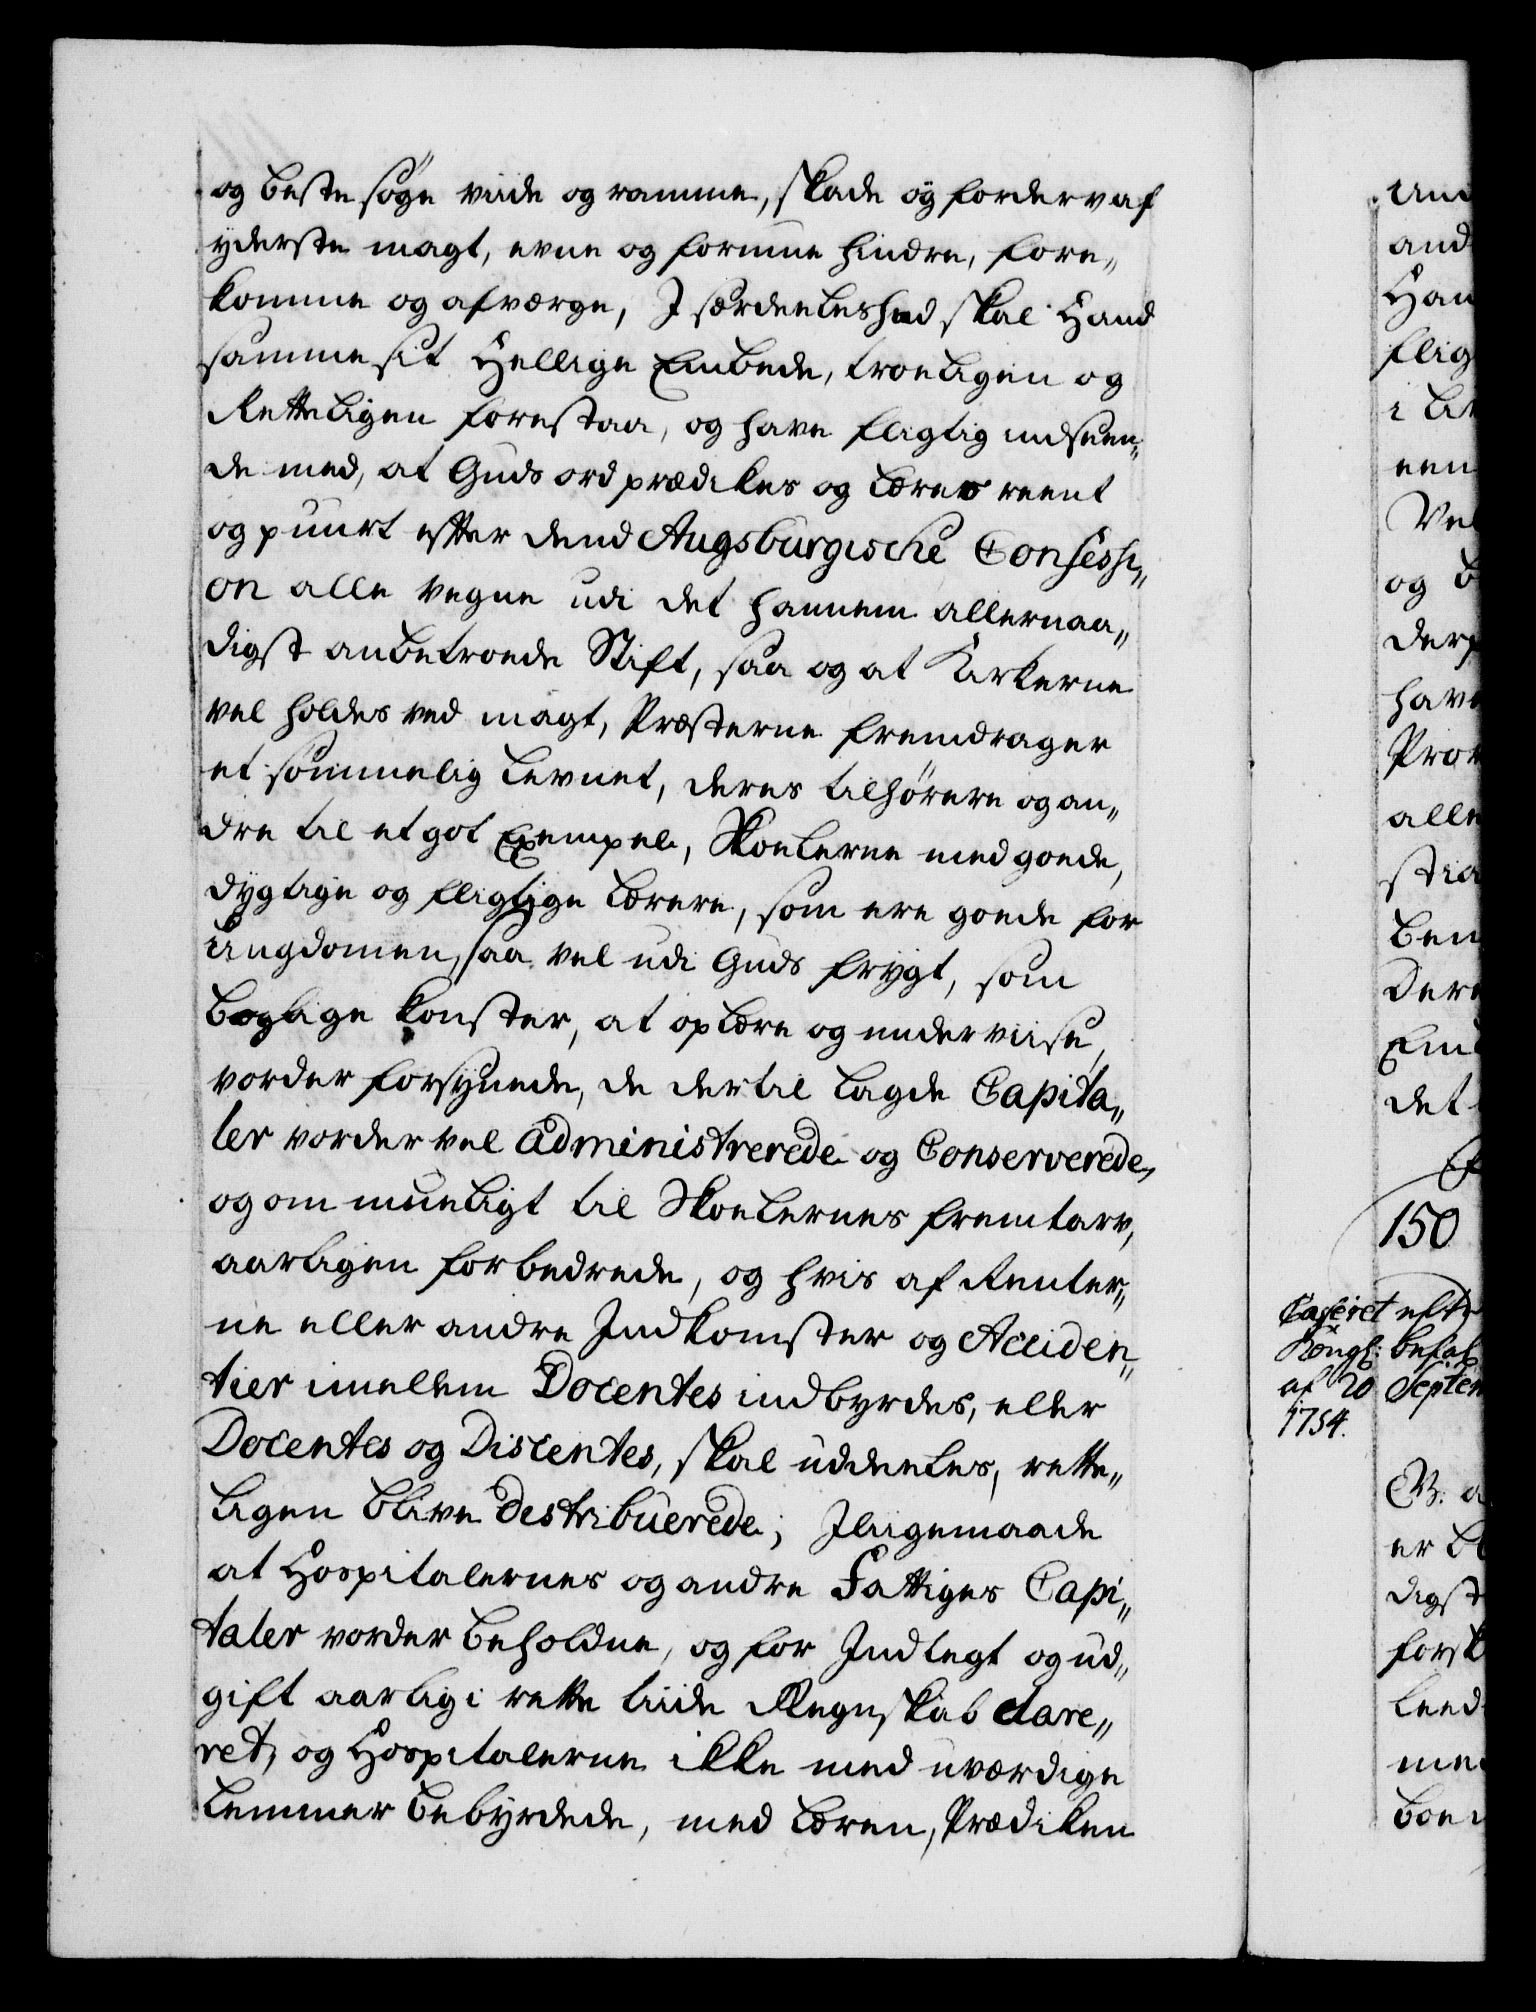 og beste søge viide og ramme, skade og forderv af
yderste magt, evne og formue hindre, fore„
komme og afværge, J særdeeleshed skal Hand
samme sit Hellige Embede, troeligen og
Retteligen forestaa, og have fligtig indseen„
de med, at Guds ord prædikes og læres reent
og puurt effter dend Augsburgische Confessi„
on alle vegne udi det hannem allernaa„
digst anbetroede Stift, saa og at Kirkerne
vel holdes ved magt, Præsterne fremdrager
et sømmelig levnet, deres tilhørere og an„
dre til et got Exempel, Skoelerne med goede,
dygtige og fligtige lærere, som ere goede for
Ungdomen, saa vel udi Guds frygt, som
boglige konster, at oplære og underviise,
vorder forsynede, de dertil lagde Capita„
ler vorder vel administrerede og Conserverede,
og om mueligt til Skoelernes fremtarv,
aarligen forbedrede, og hvis af Renter„
ne eller andre Indkomster og Acciden„
tier imellem Docentes indbyrdes, eller
Docentes og Discentes, skal uddeeles, rette„
ligen blive destribuerede; Jligemaade
at Hospitalernes og andre Fattiges Capi„
taler vorder beholdne, og for Indtegt og ud„
gift aarlig i rette tiide Regnskab clare„
ret, og Hospitalerne ikke med uværdige
Lemmer bebyrdede, med læren, Prædiken
150
Casseret efter
Kongl: befal
af 20 Septem
1754.